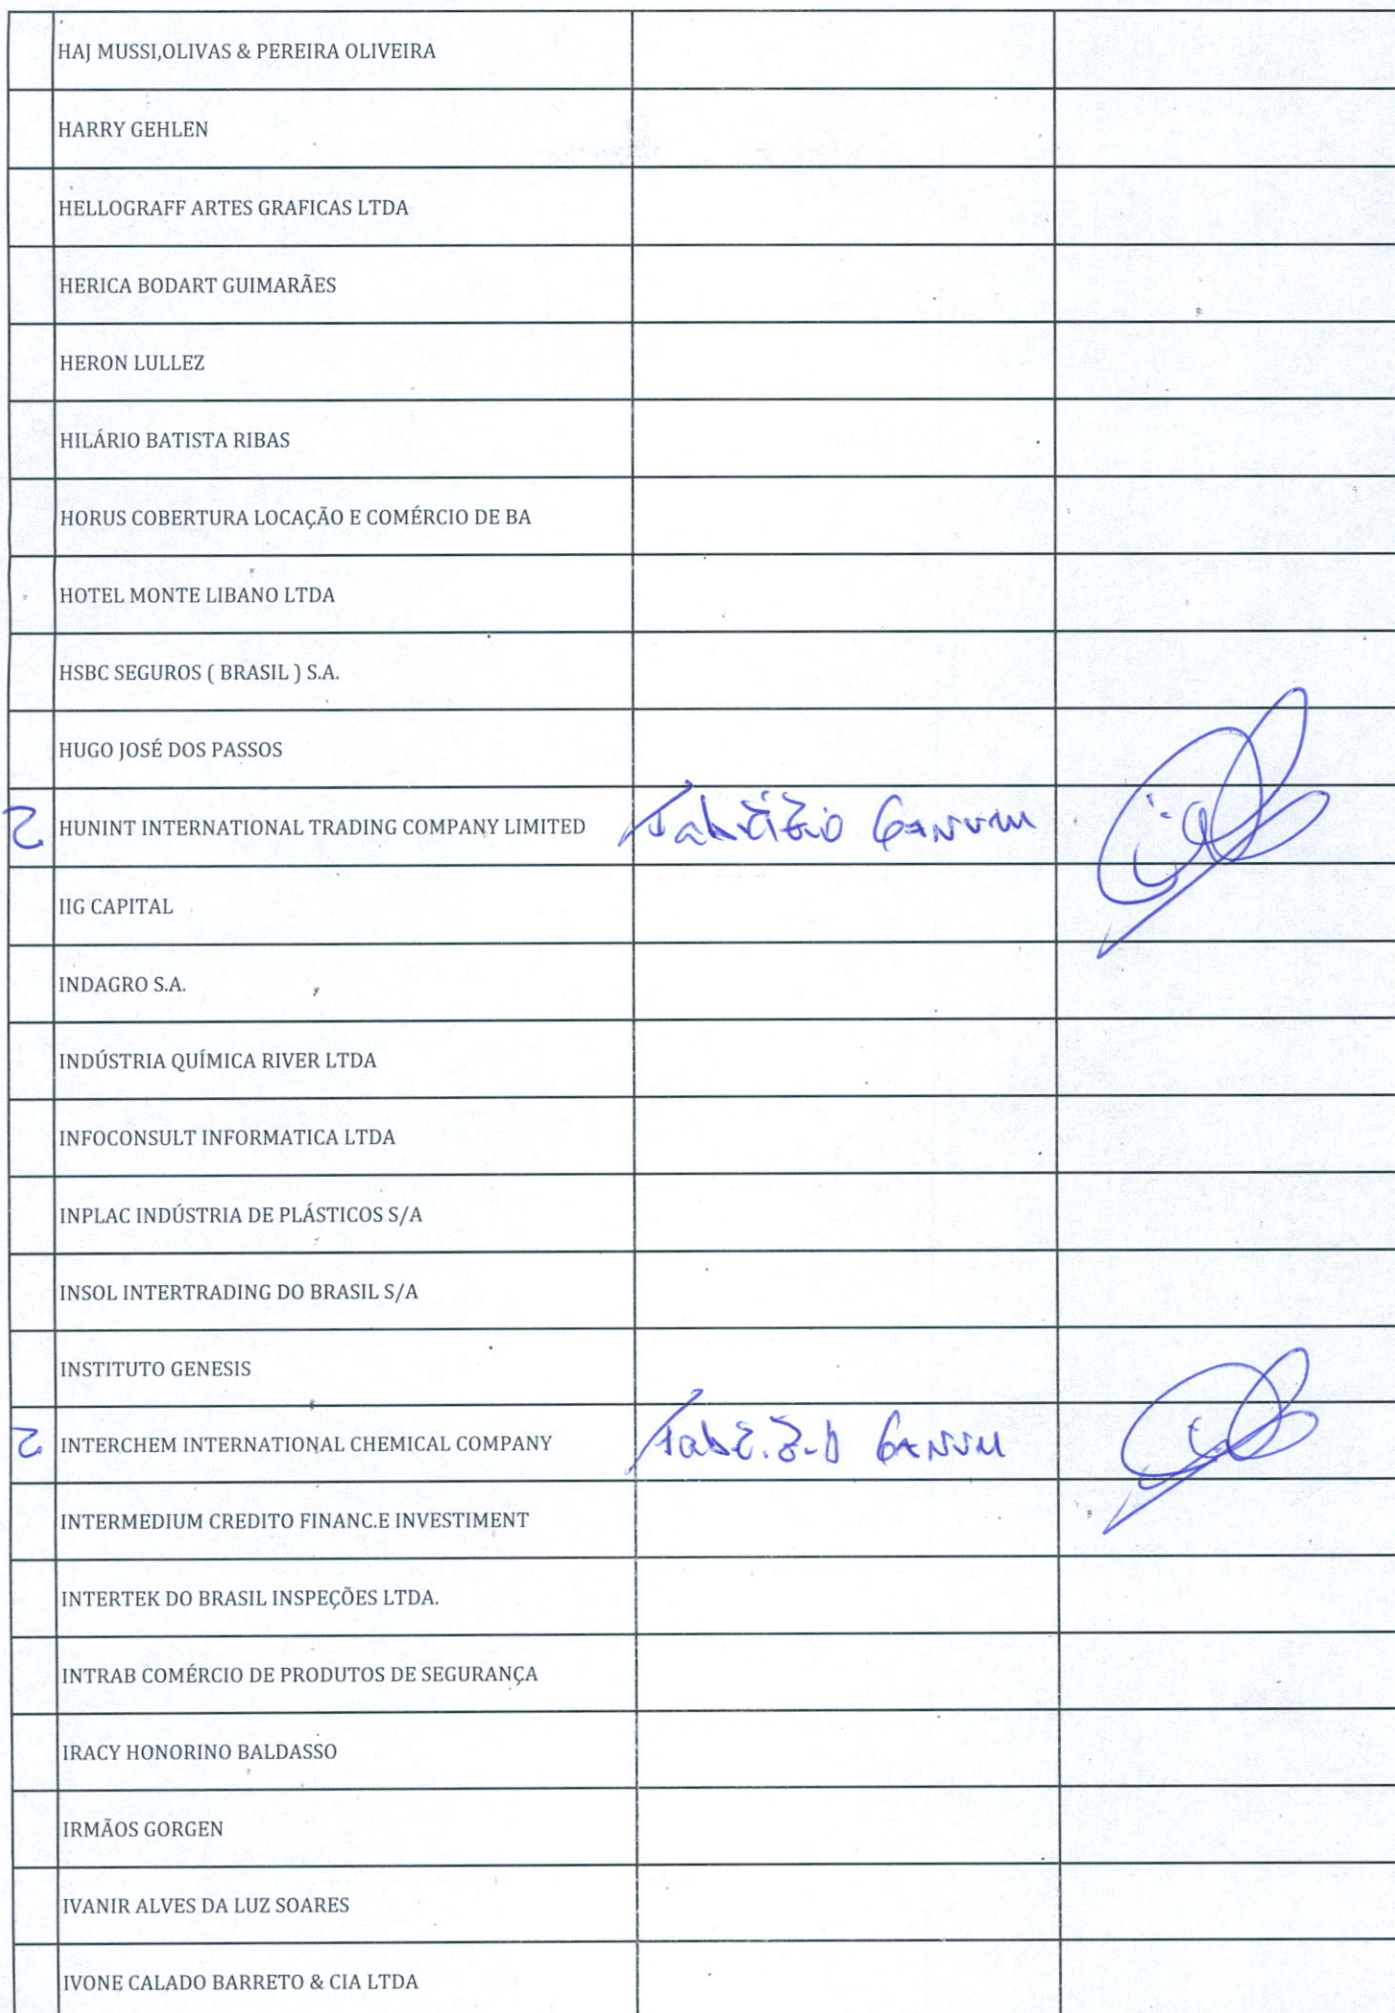 HAJ MUSSI,OLIVAS & PEREIRA OLIVEIRA
HARRY GEHLEN
HELLOGRAFF ARTES GRAFICAS LTDA
HERICA BODART GUIMARÃES
HERON LULLEZ
HILÁRIO BATISTA RIBAS
HORUS COBERTURA LOCAÇÃO E COMÉRCIO DE BA
HOTEL MONTE LIBANO LTDA
HSBC SEGUROS ( BRASIL ) S.A.
HUGO JOSÉ DOS PASSOS
HUNINT INTERNATIONAL TRADING COMPANY LIMITED Fabrizio
IIG CAPITAL
INDAGRO S.A.
INDÚSTRIA QUÍMICA RIVER LTDA
INFOCONSULT INFORMATICA LTDA
INPLAC INDÚSTRIA DE PLÁSTICOS S/A
INSOL INTERTRADING DO BRASIL S/A
INSTITUTO GENESIS
INTERCHEM INTERNATIONAL CHEMICAL COMPANY Fabrizio
INTERMEDIUM CREDITO FINANC.E INVESTIMENT
INTERTEK DO BRASIL INSPEÇÕES LTDA.
INTRAB COMÉRCIO DE PRODUTOS DE SEGURANÇA
IRACY HONORINO BALDASSO
IRMÃOS GORGEN
IVANIR ALVES DA LUZ SOARES
IVONE CALADO BARRETO & CIA LTDA